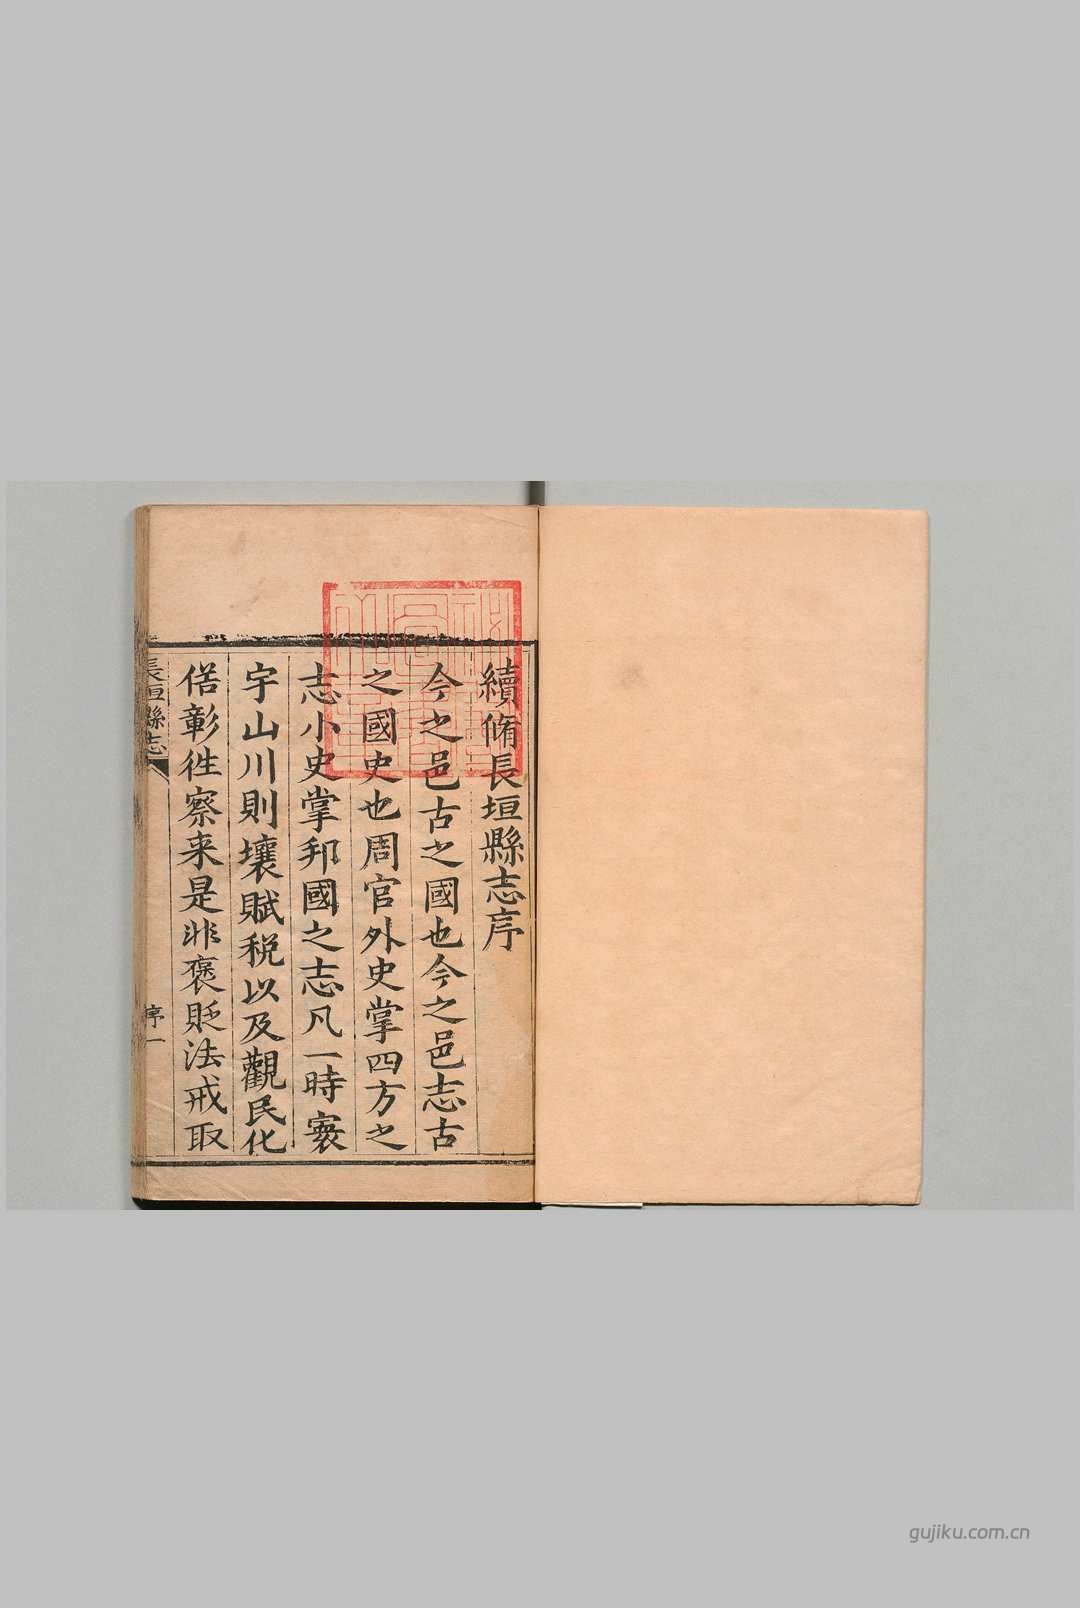 續脩長垣縣志序
今之邑古之國也今之邑志古
之國史也周官外史掌四方之
志小史掌邦國之志凡一時寰
宇山川則壤賦稅以及觀民化
俗彰徃察来是非褒貶法戒取
長垣縣志
序一
gujiku.com.cn